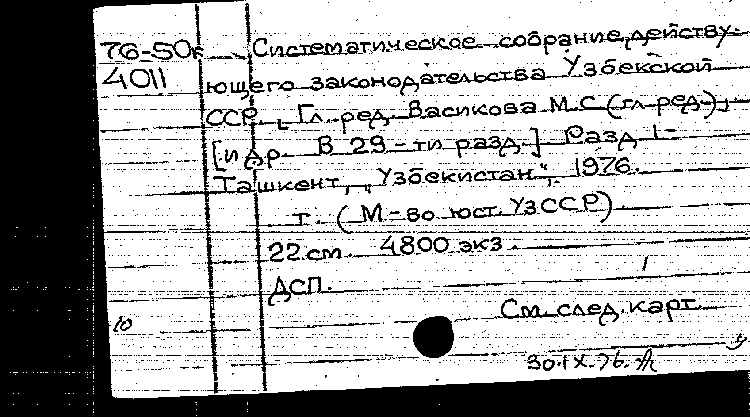 76-50к Систематическое собрание действу-
4011 ющего законодательства Узбекской
ССР. Гл. ред. Васикова М.С. (гл. ред.)
[и др. В 29-ти разд.] Разд. 1-
Ташкент, "Узбекистан", 1976.
т. (М-во юст. УзССР)
22 см. 4800 экз.
ДСП.
См. след. карт.
10
30.IX.76.